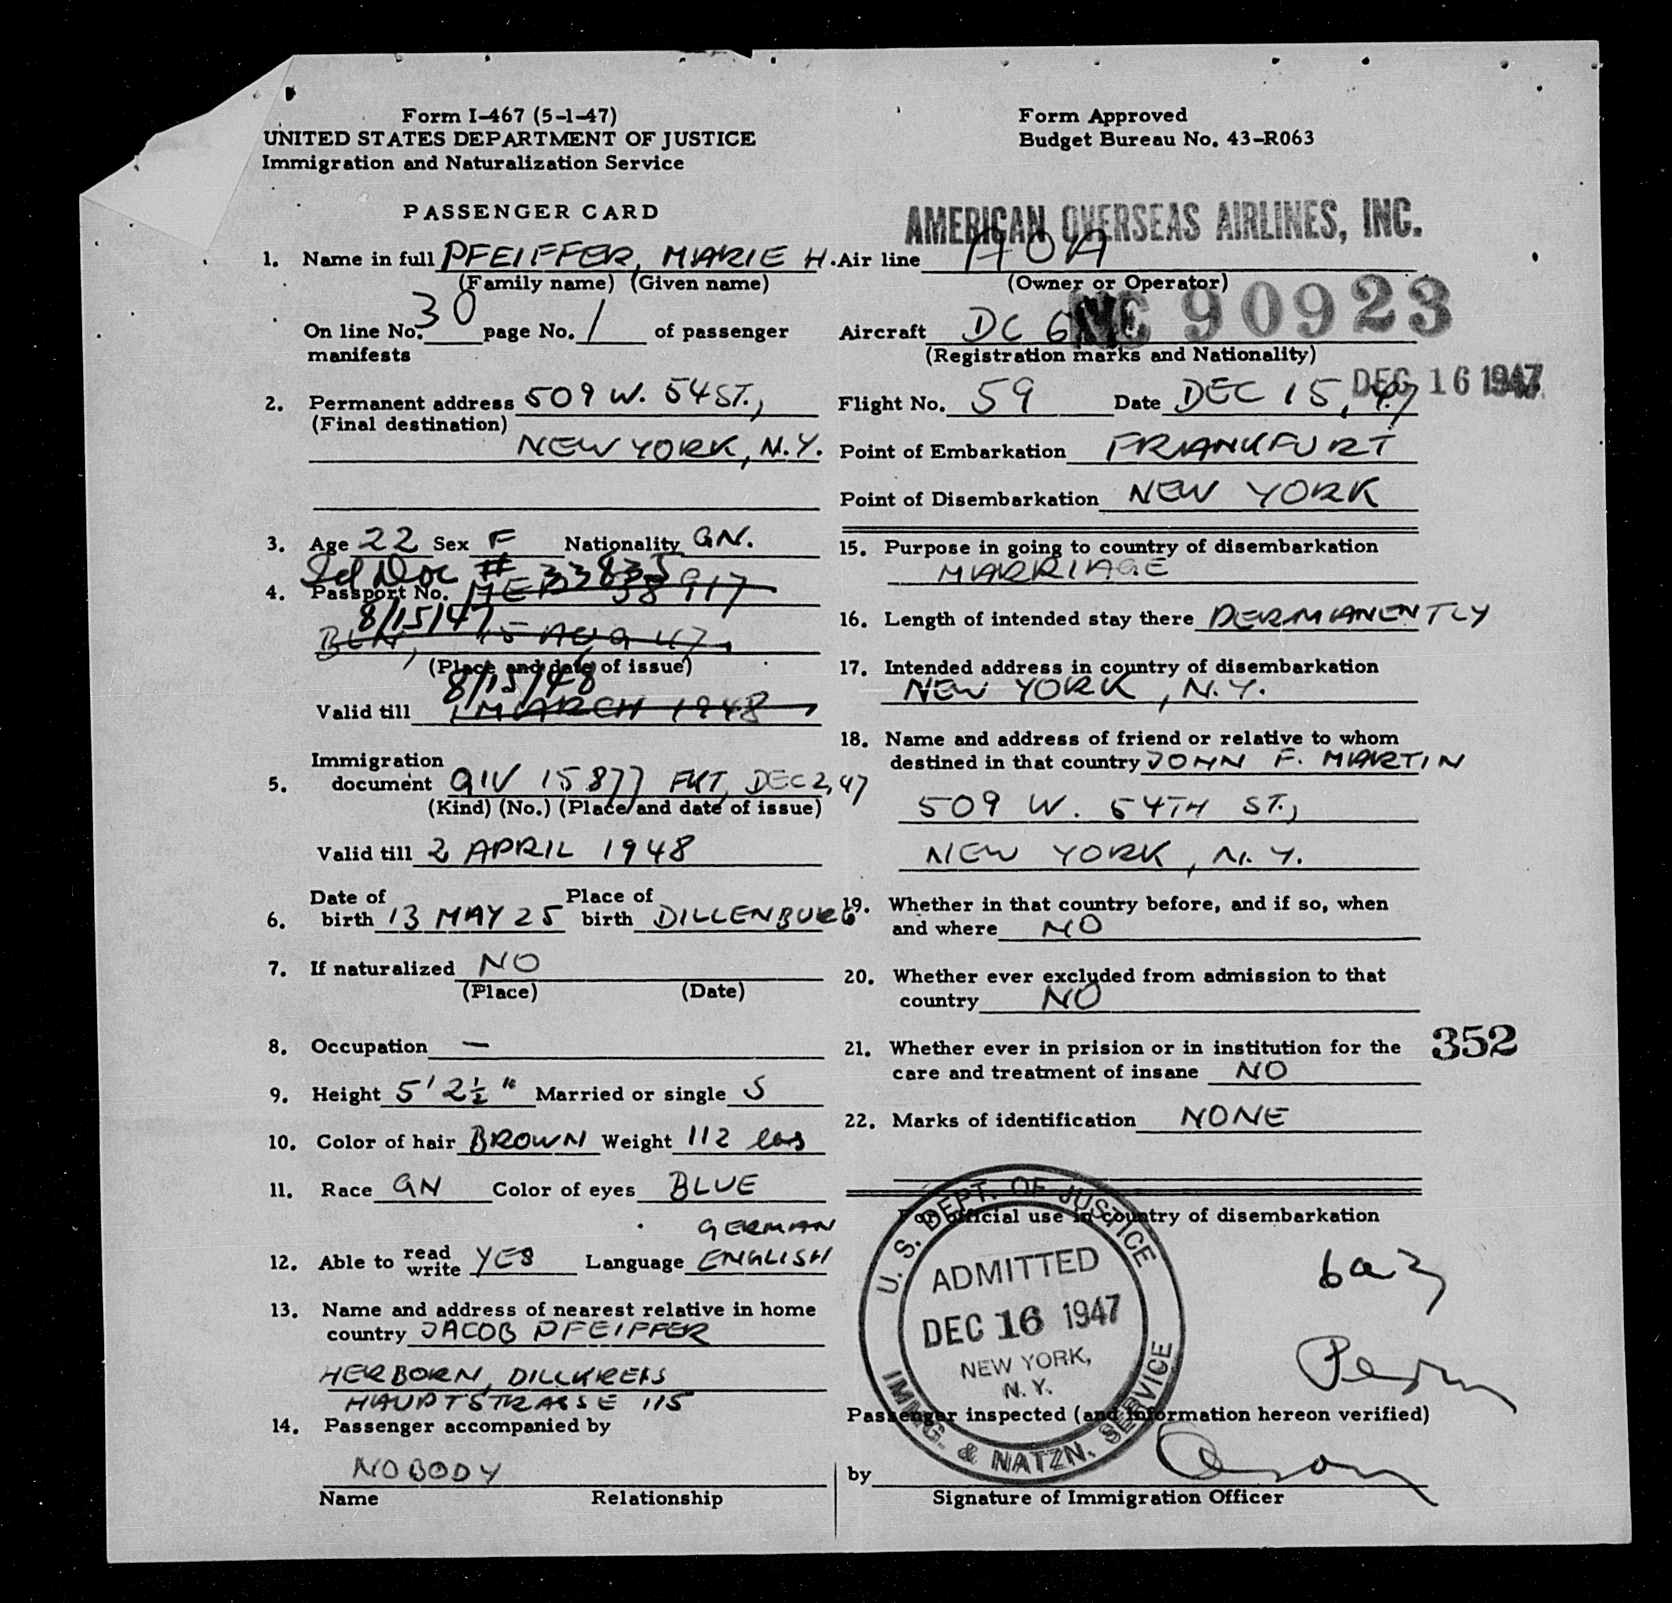 Form I-467 (5-1-47)
UNITED STATES DEPARTMENT OF JUSTICE
Immigration and Naturalization Service
PASSENGER CARD
1. Name in full PFEIFFER, MARIE H.
(Family name) (Given name)
On line No. 30 page No. 1 of passenger
manifests
2. Permanent address 509 W. 54 ST.,
(Final destination)
NEW YORK, N.Y.
3. Age 22 Sex F Nationality GN.
Id Doc # 33835
4. Passport No.
8/15/47
BLN, 15 AUG 47
(Place and date of issue)
8/15/48
Valid till 1 MARCH 1948
Immigration
5. document QIV 15877 FKT, DEC 2, 47
(Kind) (No.) (Place and date of issue)
Valid till 2 APRIL 1948
Date of Place of
6. birth 13 MAY 25 birth DILLENBURG
7. If naturalized NO
(Place) (Date)
8. Occupation —
9. Height 5' 2½" Married or single S
10. Color of hair BROWN Weight 112 lbs
11. Race GN Color of eyes BLUE
GERMAN
12. Able to read write YES Language ENGLISH
13. Name and address of nearest relative in home
country JACOB PFEIFFER
HERBORN, DILLKREIS
HAUPTSTRASSE 115
14. Passenger accompanied by
NOBODY
Name Relationship
Form Approved
Budget Bureau No. 43-R063
AMERICAN OVERSEAS AIRLINES, INC.
Air line AOA
(Owner or Operator)
Aircraft DC 6 NC 90923
(Registration marks and Nationality)
DEC 16 1947
Flight No. 59 Date DEC 15, 47
Point of Embarkation FRANKFURT
Point of Disembarkation NEW YORK
15. Purpose in going to country of disembarkation
MARRIAGE
16. Length of intended stay there PERMANENTLY
17. Intended address in country of disembarkation
NEW YORK, N.Y.
18. Name and address of friend or relative to whom
destined in that country JOHN F. MARTIN
509 W. 54TH ST.,
NEW YORK, N.Y.
19. Whether in that country before, and if so, when
and where NO
20. Whether ever excluded from admission to that
country NO
21. Whether ever in prision or in institution for the
care and treatment of insane NO
352
22. Marks of identification NONE
For official use in country of disembarkation
U. S. DEPT. OF JUSTICE
ADMITTED
DEC 16 1947
NEW YORK,
N. Y.
IMMG. & NATZN. SERVICE
Passenger inspected (and information hereon verified)
by
Signature of Immigration Officer